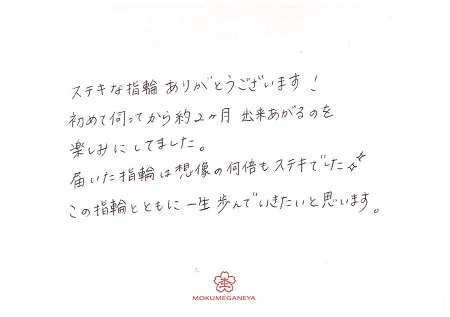 ステキな指輪ありがとうございます！
初めて伺ってから約2ヶ月 出来あがるのを
楽しみにしてました。
届いた指輪は想像の何倍もステキでした
この指輪とともに一生歩んでいきたいと思います。
MOKUMEGANEYA